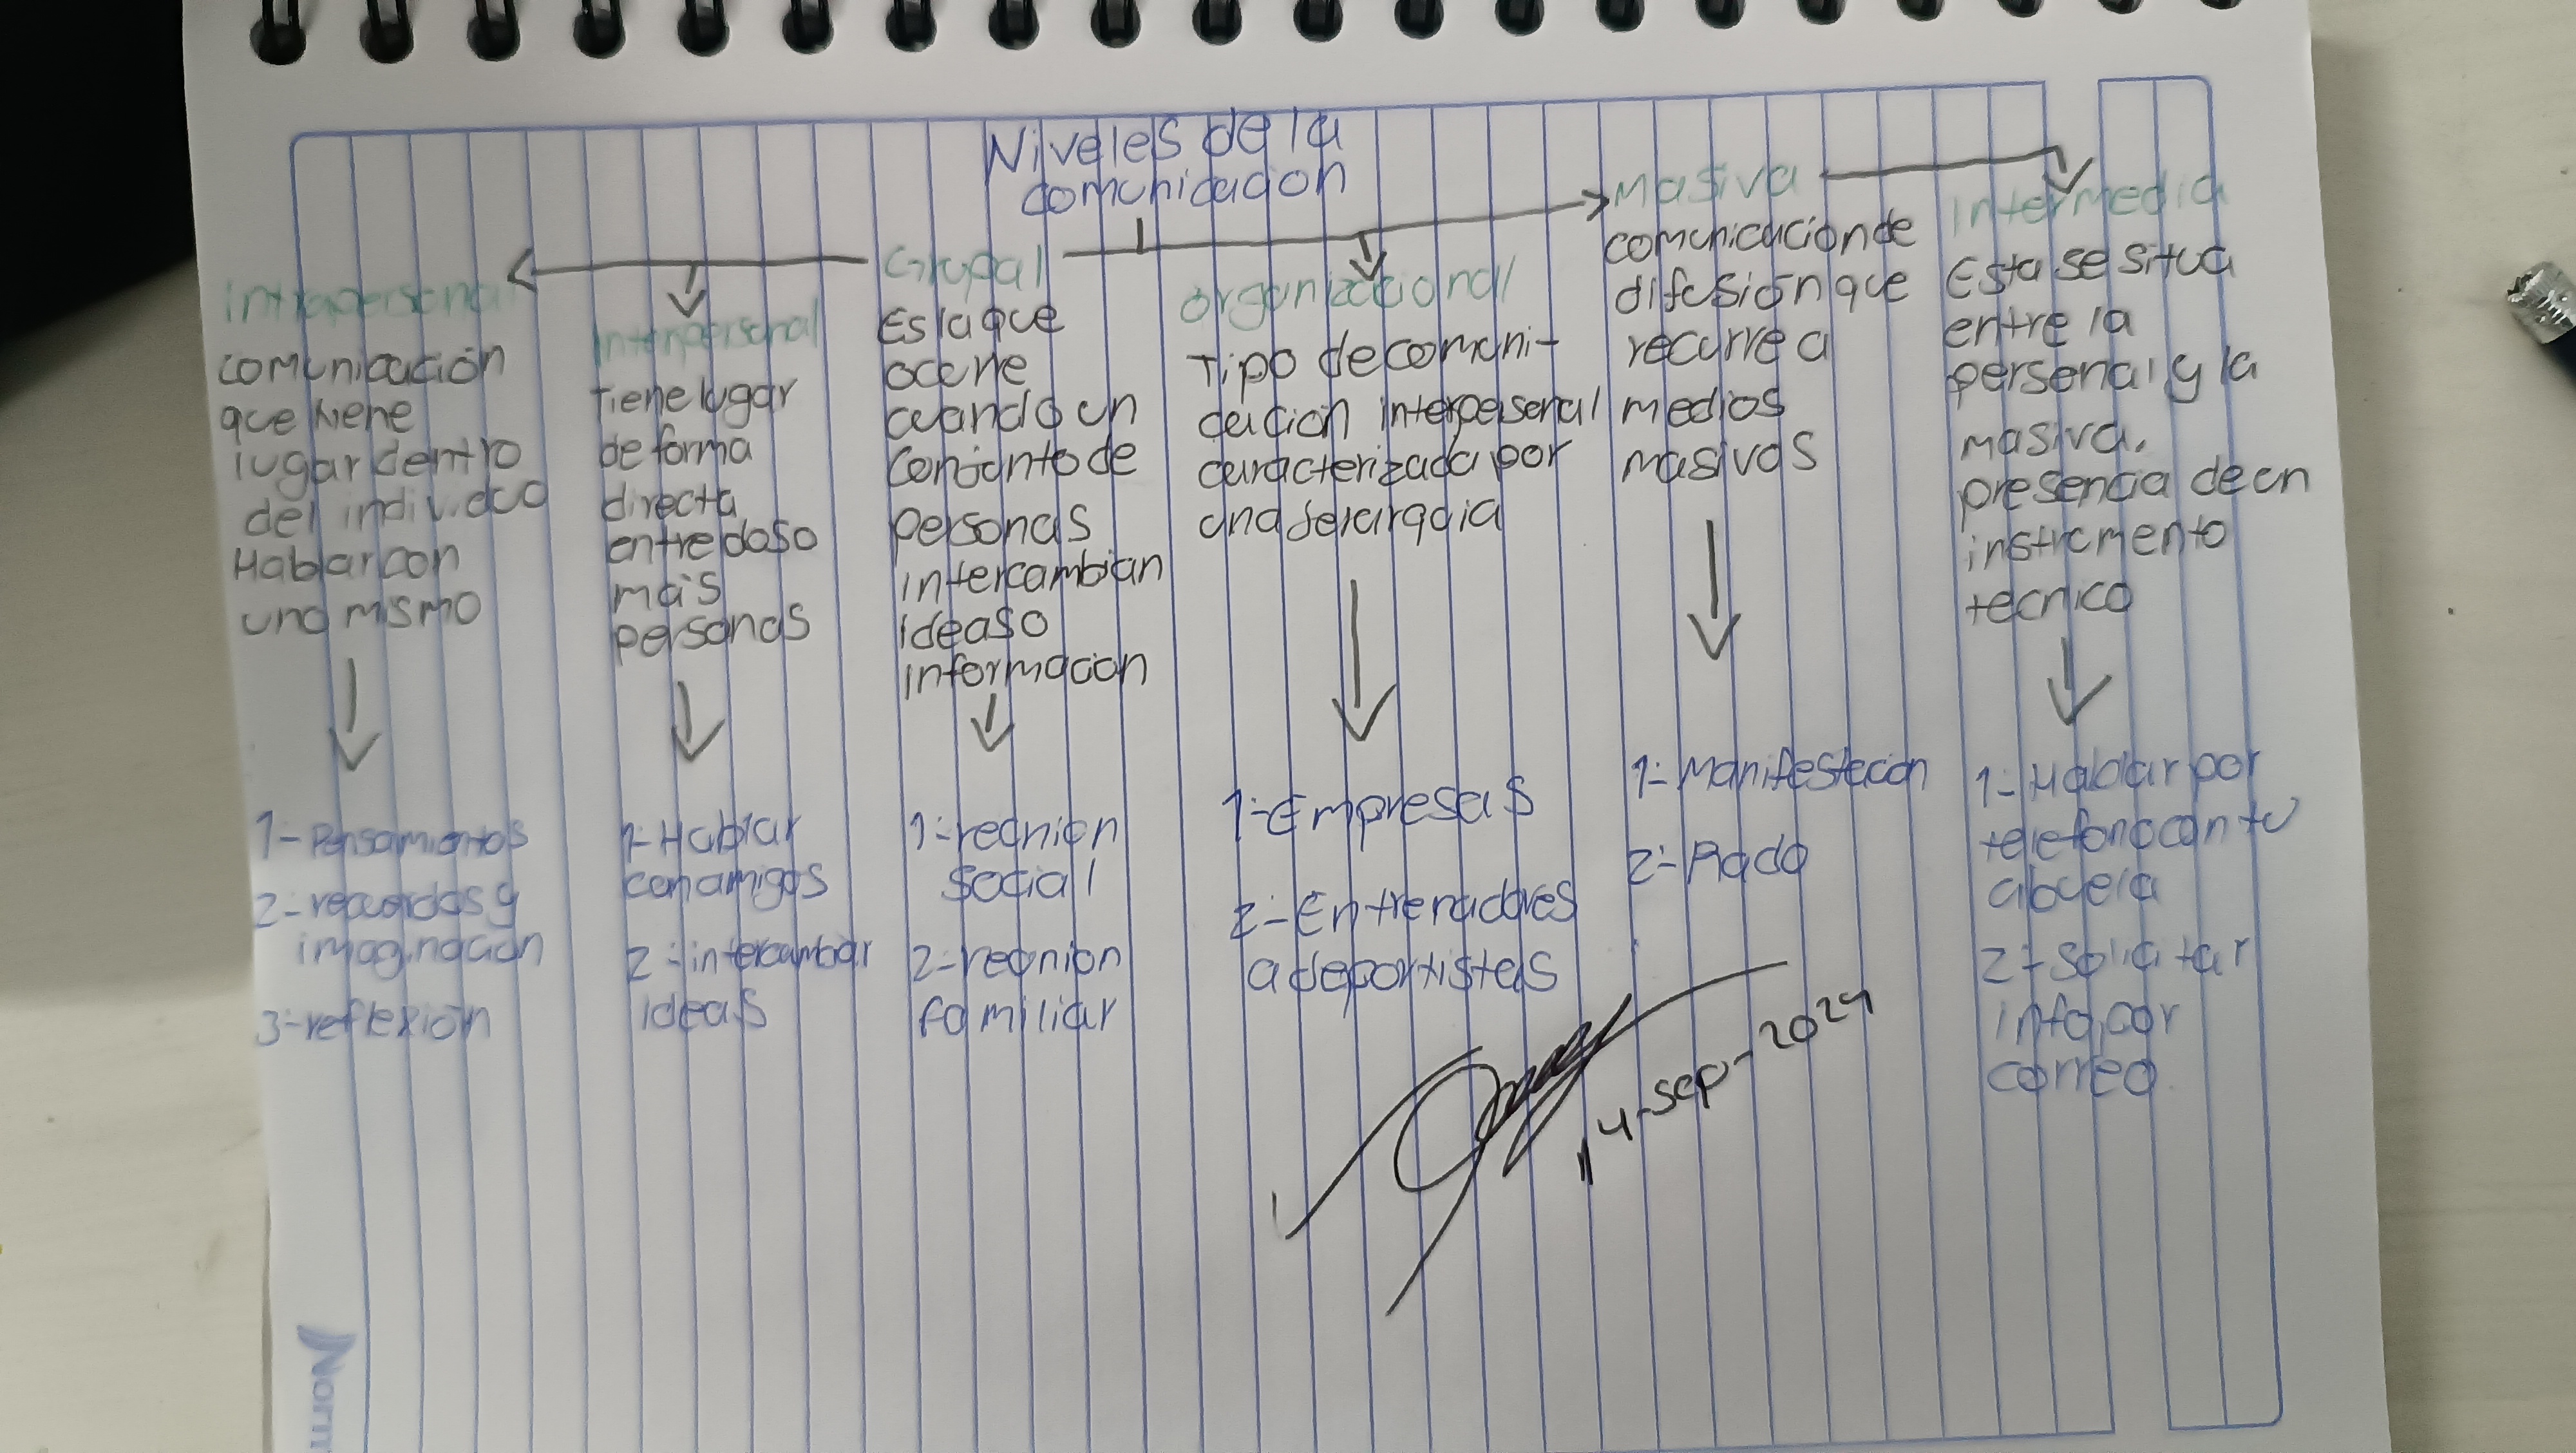 Niveles de la
comunicacion
Intrapersonal
comunicación
que tiene
lugar dentro
del individuo
Hablar con
uno mismo
1- Pensamientos
2- recuerdos y
imaginacion
3- reflexión
Interpersonal
Tiene lugar
de forma
directa
entre dos o
más
personas
1- Hablar
con amigos
2- intercambiar
ideas
Grupal
Es la que
ocurre
cuando un
conjunto de
personas
intercambian
ideas o
informacion
1- reunion
social
2- reunion
familiar
organizacional
Tipo de comuni-
cacion interpersonal
caracterizada por
una Jerarquia
1- Empresas
2- Entrenadores
a deportistas
Masiva
comunicacion de
difusión que
recurre a
medios
masivos
1- Manifestacion
2-
Intermedia
Esta se situa
entre la
personal y la
masiva.
presencia de un
instrumento
tecnico
1- Hablar por
telefono con tu
abuela
2- Solicitar
info, por
correo
14-sep-2024
Norm